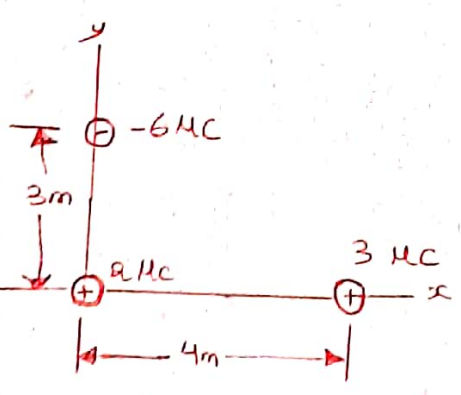 y
-6 μC
3m
2 μC
3 μC
x
4m